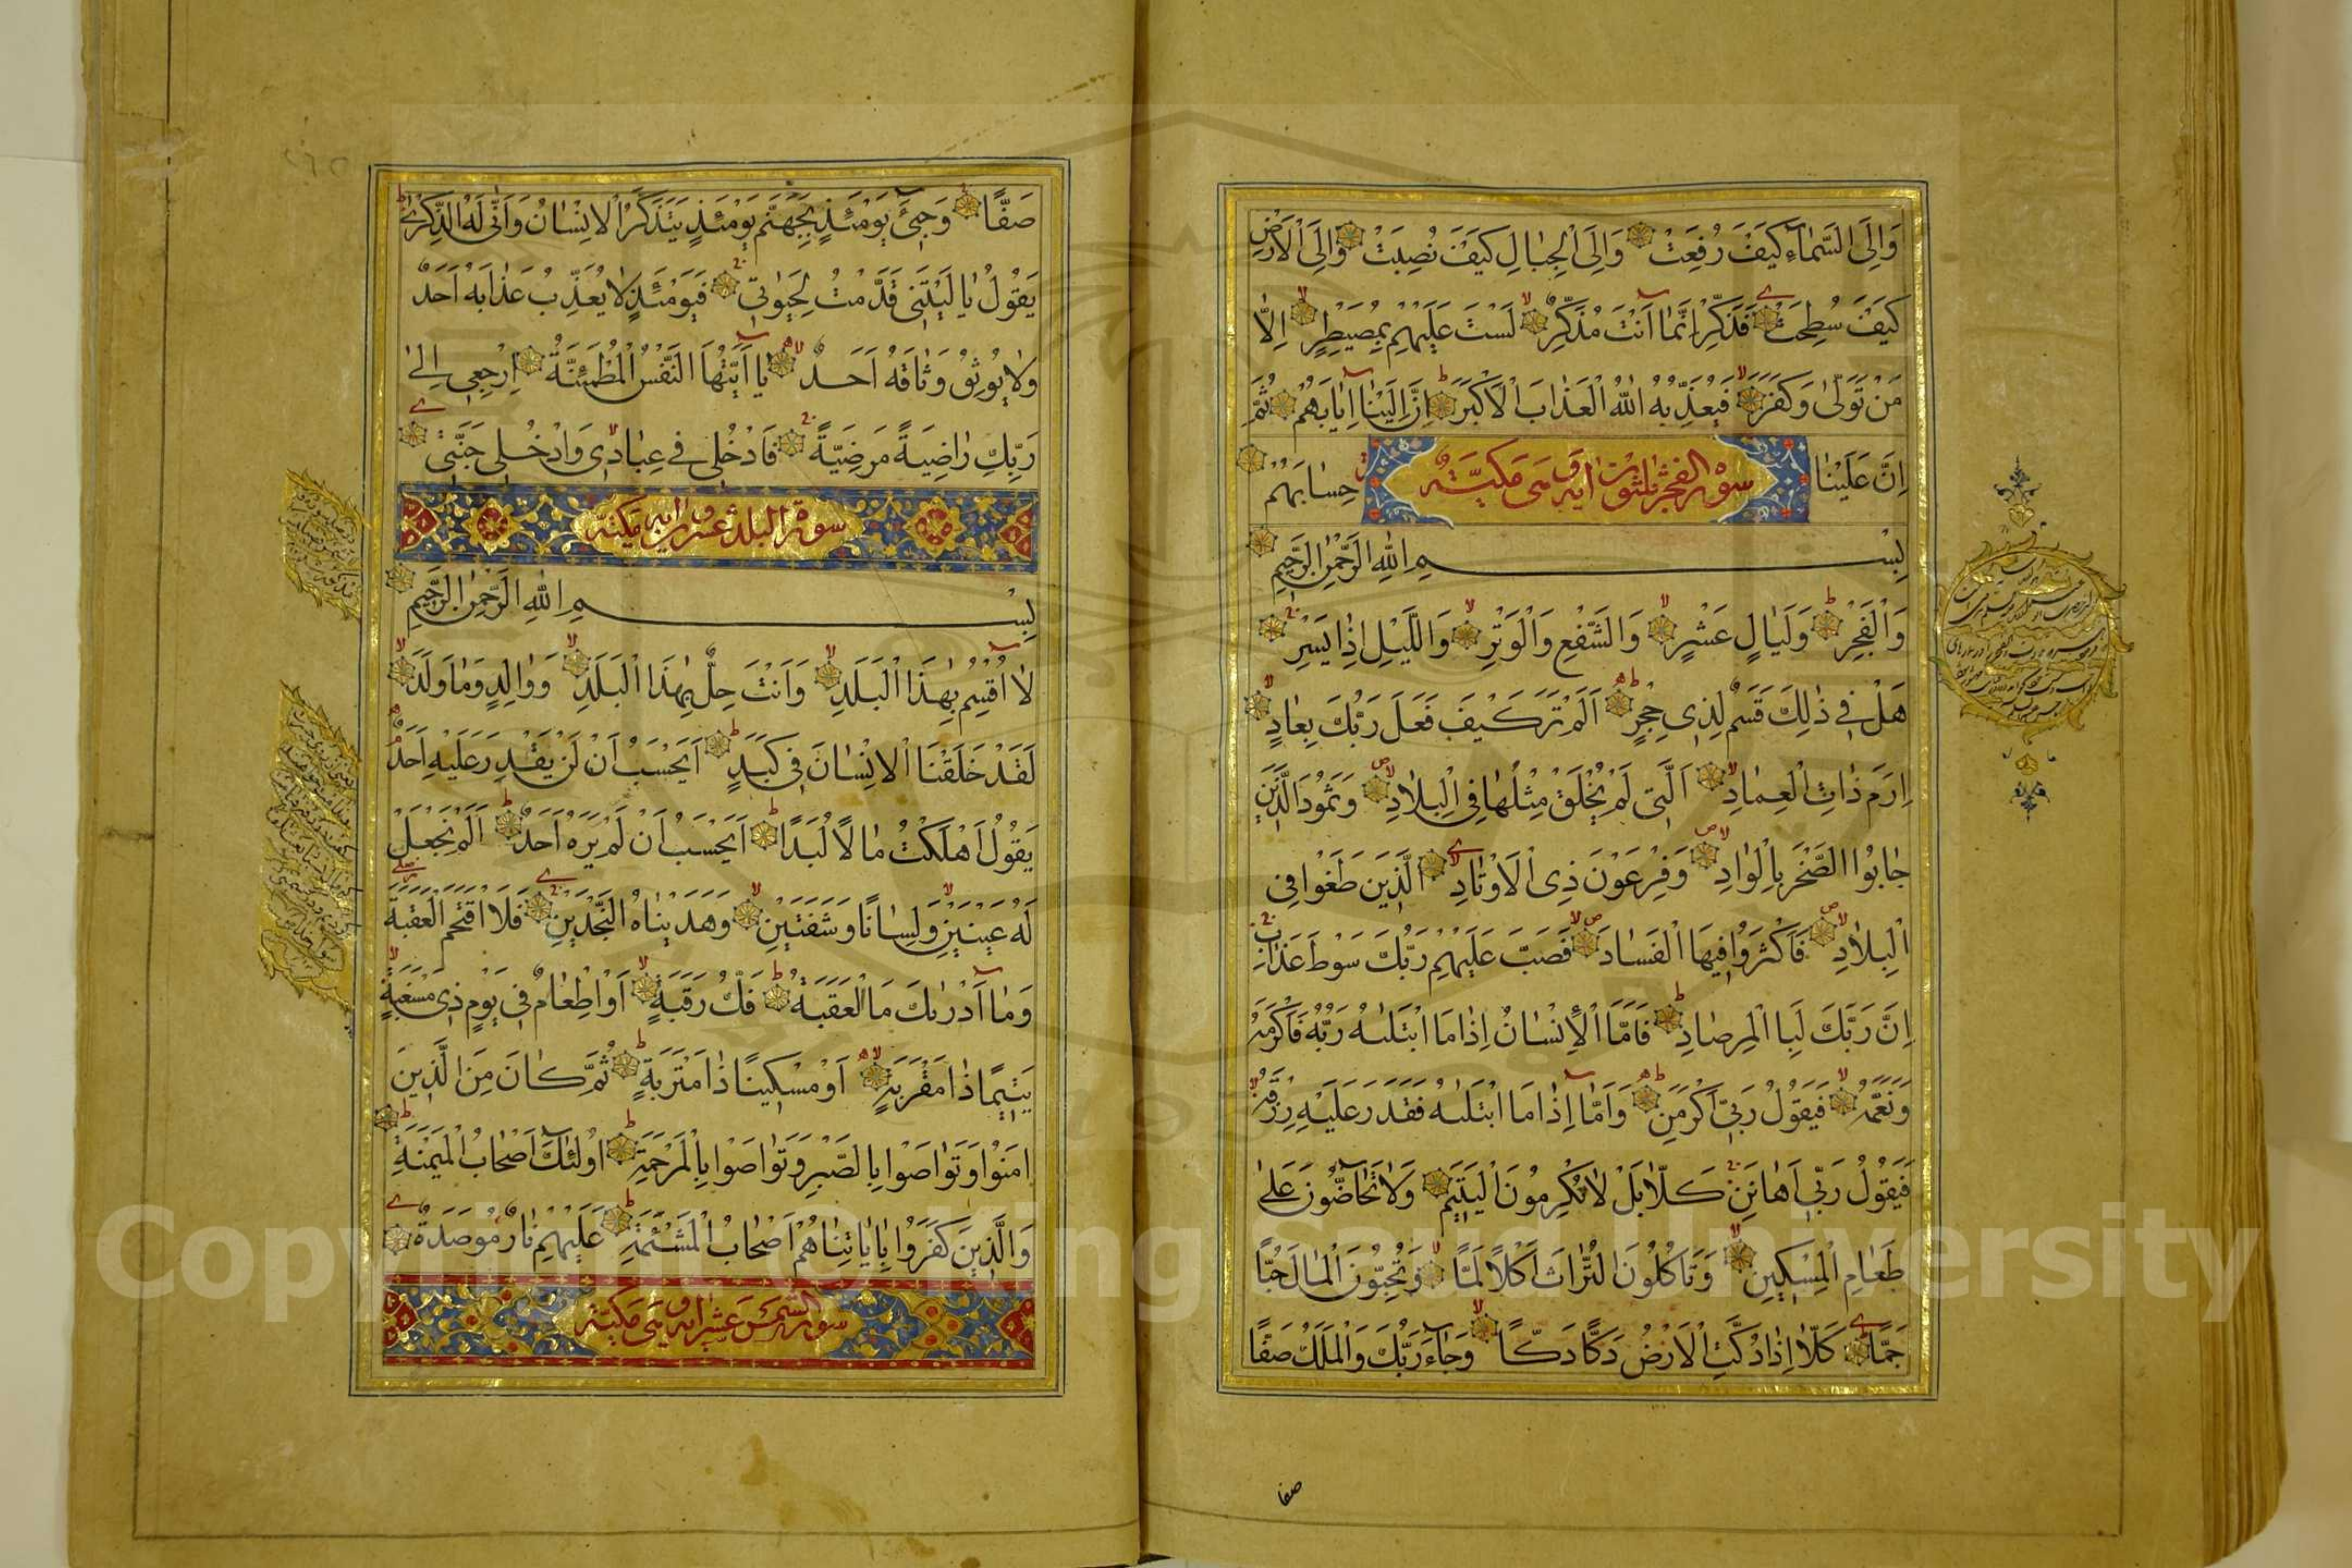 وَاِلَى السَّمَاءِ كَيْفَ رُفِعَتْ وَاِلَى الْجِبَالِ كَيْفَ نُصِبَتْ وَاِلَى الْاَرْضِ
كَيْفَ سُطِحَتْ فَذَكِّرْ اِنَّمَا اَنْتَ مُذَكِّرٌ لَسْتَ عَلَيْهِمْ بِمُصَيْطِرٍ اِلَّا
مَنْ تَوَلّٰى وَكَفَرَ فَيُعَذِّبُهُ اللّٰهُ الْعَذَابَ الْاَكْبَرَ اِنَّ اِلَيْنَا اِيَابَهُمْ ثُمَّ
اِنَّ عَلَيْنَا حِسَابَهُمْ
سورة الفجر ثلثون آية وهى مكية
بِسْمِ اللّٰهِ الرَّحْمٰنِ الرَّحِيمِ
وَالْفَجْرِ وَلَيَالٍ عَشْرٍ وَالشَّفْعِ وَالْوَتْرِ وَاللَّيْلِ اِذَا يَسْرِ
هَلْ فِي ذٰلِكَ قَسَمٌ لِذِي حِجْرٍ اَلَمْ تَرَ كَيْفَ فَعَلَ رَبُّكَ بِعَادٍ
اِرَمَ ذَاتِ الْعِمَادِ الَّتِي لَمْ يُخْلَقْ مِثْلُهَا فِي الْبِلَادِ وَثَمُودَ الَّذِينَ
جَابُوا الصَّخْرَ بِالْوَادِ وَفِرْعَوْنَ ذِي الْاَوْتَادِ الَّذِينَ طَغَوْا فِي
الْبِلَادِ فَاَكْثَرُوا فِيهَا الْفَسَادَ فَصَبَّ عَلَيْهِمْ رَبُّكَ سَوْطَ عَذَابٍ
اِنَّ رَبَّكَ لَبِا الْمِرْصَادِ فَاَمَّا الْاِنْسَانُ اِذَا مَا ابْتَلٰىهُ رَبُّهُ فَاَكْرَمَهُ
وَنَعَّمَهُ فَيَقُولُ رَبِّي اَكْرَمَنِ وَاَمَّا اِذَا مَا ابْتَلٰىهُ فَقَدَرَ عَلَيْهِ رِزْقَهُ
فَيَقُولُ رَبِّي اَهَانَنِ كَلَّا بَلْ لَا تُكْرِمُونَ الْيَتِيمَ وَلَا تَحَاضُّونَ عَلٰى
طَعَامِ الْمِسْكِينِ وَتَاْكُلُونَ التُّرَاثَ اَكْلًا لَمًّا وَتُحِبُّونَ الْمَالَ حُبًّا
جَمًّا كَلَّا اِذَا دُكَّتِ الْاَرْضُ دَكًّا دَكًّا وَجَاءَ رَبُّكَ وَالْمَلَكُ صَفًّا
صفا
صَفًّا وَجِيءَ يَوْمَئِذٍ بِجَهَنَّمَ يَوْمَئِذٍ يَتَذَكَّرُ الْاِنْسَانُ وَاَنّٰى لَهُ الذِّكْرٰى
يَقُولُ يَا لَيْتَنِي قَدَّمْتُ لِحَيٰوتِي فَيَوْمَئِذٍ لَا يُعَذِّبُ عَذَابَهُ اَحَدٌ
وَلَا يُوثِقُ وَثَاقَهُ اَحَدٌ يَا اَيَّتُهَا النَّفْسُ الْمُطْمَئِنَّةُ اِرْجِعِي اِلٰى
رَبِّكِ رَاضِيَةً مَرْضِيَّةً فَادْخُلِي فِي عِبَادِي وَادْخُلِي جَنَّتِي
سورة البلد عشرون آية مكية
بِسْمِ اللّٰهِ الرَّحْمٰنِ الرَّحِيمِ
لَا اُقْسِمُ بِهٰذَا الْبَلَدِ وَاَنْتَ حِلٌّ بِهٰذَا الْبَلَدِ وَوَالِدٍ وَمَا وَلَدَ
لَقَدْ خَلَقْنَا الْاِنْسَانَ فِي كَبَدٍ اَيَحْسَبُ اَنْ لَنْ يَقْدِرَ عَلَيْهِ اَحَدٌ
يَقُولُ اَهْلَكْتُ مَالًا لُبَدًا اَيَحْسَبُ اَنْ لَمْ يَرَهُ اَحَدٌ اَلَمْ نَجْعَلْ
لَهُ عَيْنَيْنِ وَلِسَانًا وَشَفَتَيْنِ وَهَدَيْنَاهُ النَّجْدَيْنِ فَلَا اقْتَحَمَ الْعَقَبَةَ
وَمَا اَدْرٰىكَ مَا الْعَقَبَةُ فَكُّ رَقَبَةٍ اَوْ اِطْعَامٌ فِي يَوْمٍ ذِي مَسْغَبَةٍ
يَتِيمًا ذَا مَقْرَبَةٍ اَوْ مِسْكِينًا ذَا مَتْرَبَةٍ ثُمَّ كَانَ مِنَ الَّذِينَ
اٰمَنُوا وَتَوَاصَوْا بِالصَّبْرِ وَتَوَاصَوْا بِالْمَرْحَمَةِ اُولٰئِكَ اَصْحَابُ الْمَيْمَنَةِ
وَالَّذِينَ كَفَرُوا بِاٰيَاتِنَا هُمْ اَصْحَابُ الْمَشْئَمَةِ عَلَيْهِمْ نَارٌ مُوصَدَةٌ
سورة الشمس خمس عشر آية وهى مكية
Copyright © King Saud University